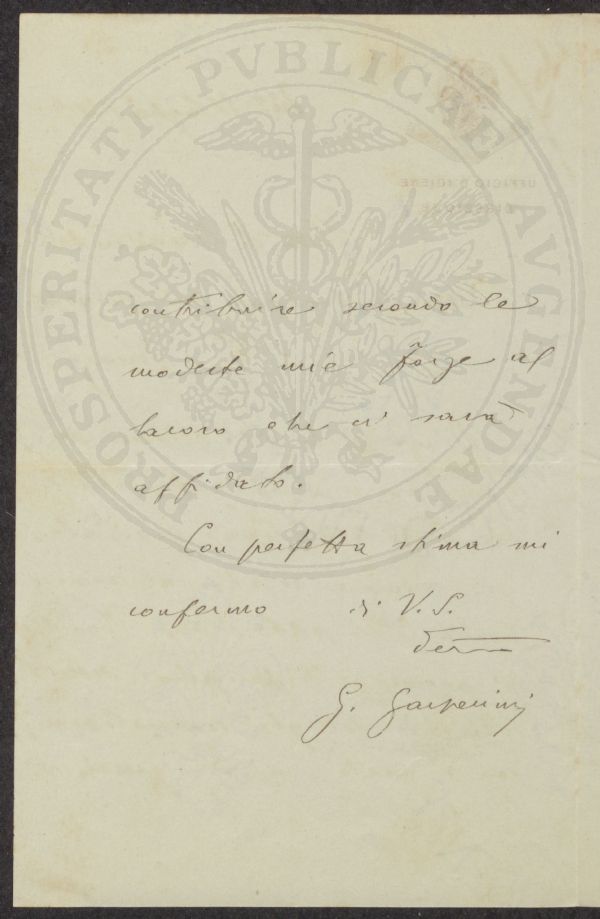 PROSPERITATI PVBLICAE AVGENDAE
UFFICIO D'IGIENE
contribuire secondo le
modeste mie forze al
lavoro che ci sarà
affidato.
Con perfetta stima mi
confermo di V. S.
G. Gasperini